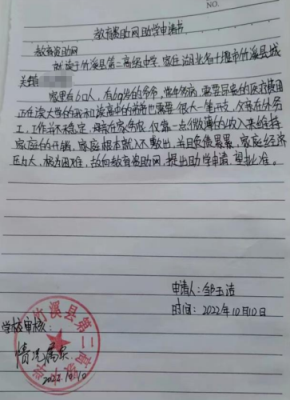 NO.
教育资助网助学申请书
教育资助网:
就读于竹溪县第一高级中学,家住湖北省十堰市竹溪县城
关镇
家里有6口人,有69岁的爷爷,常年多病,需要昂贵的医药费用
正在读大学的 和读高中的 也需要很大一笔开支,父亲在外务
工,工作并不稳定,母亲在家务农,仅靠一点微薄的收入来维持
家庭的开销,家庭根本就入不敷出,并且负债累累,家庭经济
压力大,极为困难,故向教育资助网,提出助学申请,望批准。
申请人:邹玉洁
时间:2022年10月10日
学校审核:
情况属实
2022.10.10
竹溪县第一高级中学